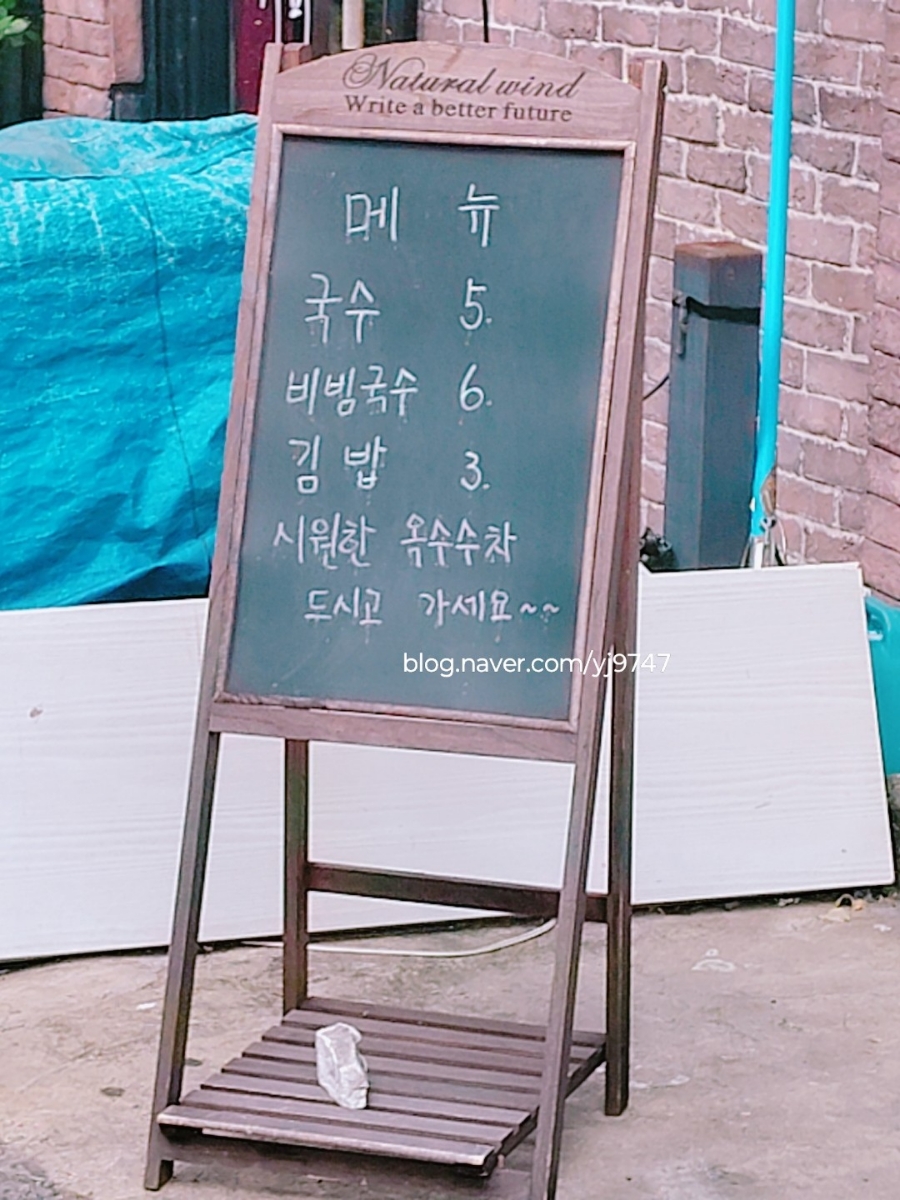 Natural wind
Write a better future
메 뉴
국수 5.
비빔국수 6.
김밥 3.
시원한 옥수수차
드시고 가세요~~
blog.naver.com/yj9747